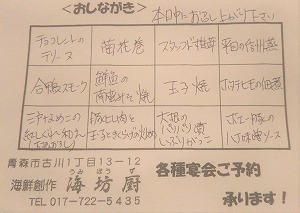 <おしながき>
本日中にお召し上がり下さい
チョコレートの
テリーヌ
菊花巻
スタッフド椎茸
平目の信州蒸
合鴨スモーク
鮮魚の
南蛮みそ焼
玉子焼
ホタテヒモの佃煮
紅しょうが和え
豚ヒレ肉と
玉子ときくらげの炒め
大根の
パリパリ漬
いぶりがっこ
ポーク豚との
八丁味噌ソース
青森市古川1丁目13-12
海鮮創作
うみ ぼう ず
海坊厨
TEL 017-722-5435
各種宴会ご予約
承ります!